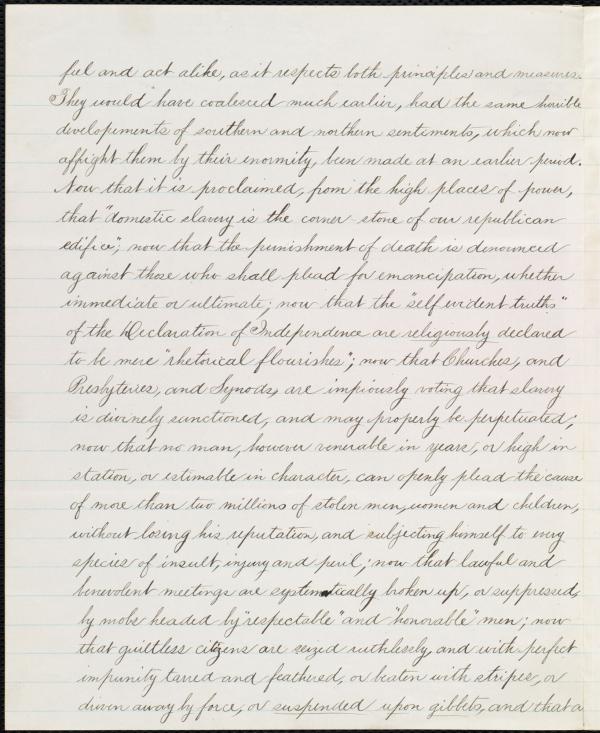 feel and act alike, as it respects both principles and measures.
They would have coalesced much earlier, had the same horrible
developements of southern and northern sentiments, which now
affright them by their enormity, been made at an earlier period.
Now that it is proclaimed, from the high places of power,
that "domestic slavery is the corner-stone of our republican
edifice"; now that the punishment of death is denounced
against those who shall plead for emancipation, whether
immediate or ultimate; now that the "self evident truths"
of the Declaration of Independence are religiously declared
to be mere "rhetorical flourishes"; now that Churches, and
Presbyteries, and Synods, are impiously voting that slavery
is divinely sanctioned, and may properly be perpetuated;
now that no man, however venerable in years, or high in
station, or estimable in character, can openly plead the cause
of more than two millions of stolen men, women and children,
without losing his reputation, and subjecting himself to every
species of insult, injury and peril; now that lawful and
benevolent meetings are systematically broken up, or suppressed,
by mobs headed by "respectable" and "honorable" men; now
that guiltless citizens are seized ruthlessly, and with perfect
impunity tarred and feathered, or beaten with stripes, or
driven away by force, or suspended upon gibbets, and that a